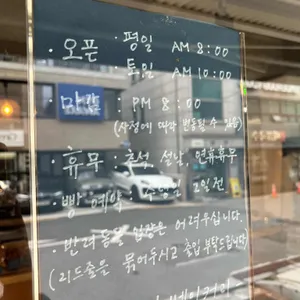 · 오픈 · 평일 AM 8:00
· 토일 AM 10:00
· 마감 : PM 8:00
(사정에 따라 변동될 수 있음)
· 휴무 · 추석, 설날, 연휴휴무
· 빵 예약 · 2일전
· 반려동물 입장은 어려우십니다.
(리드줄은 묶어두시고 출입 부탁드립니다)